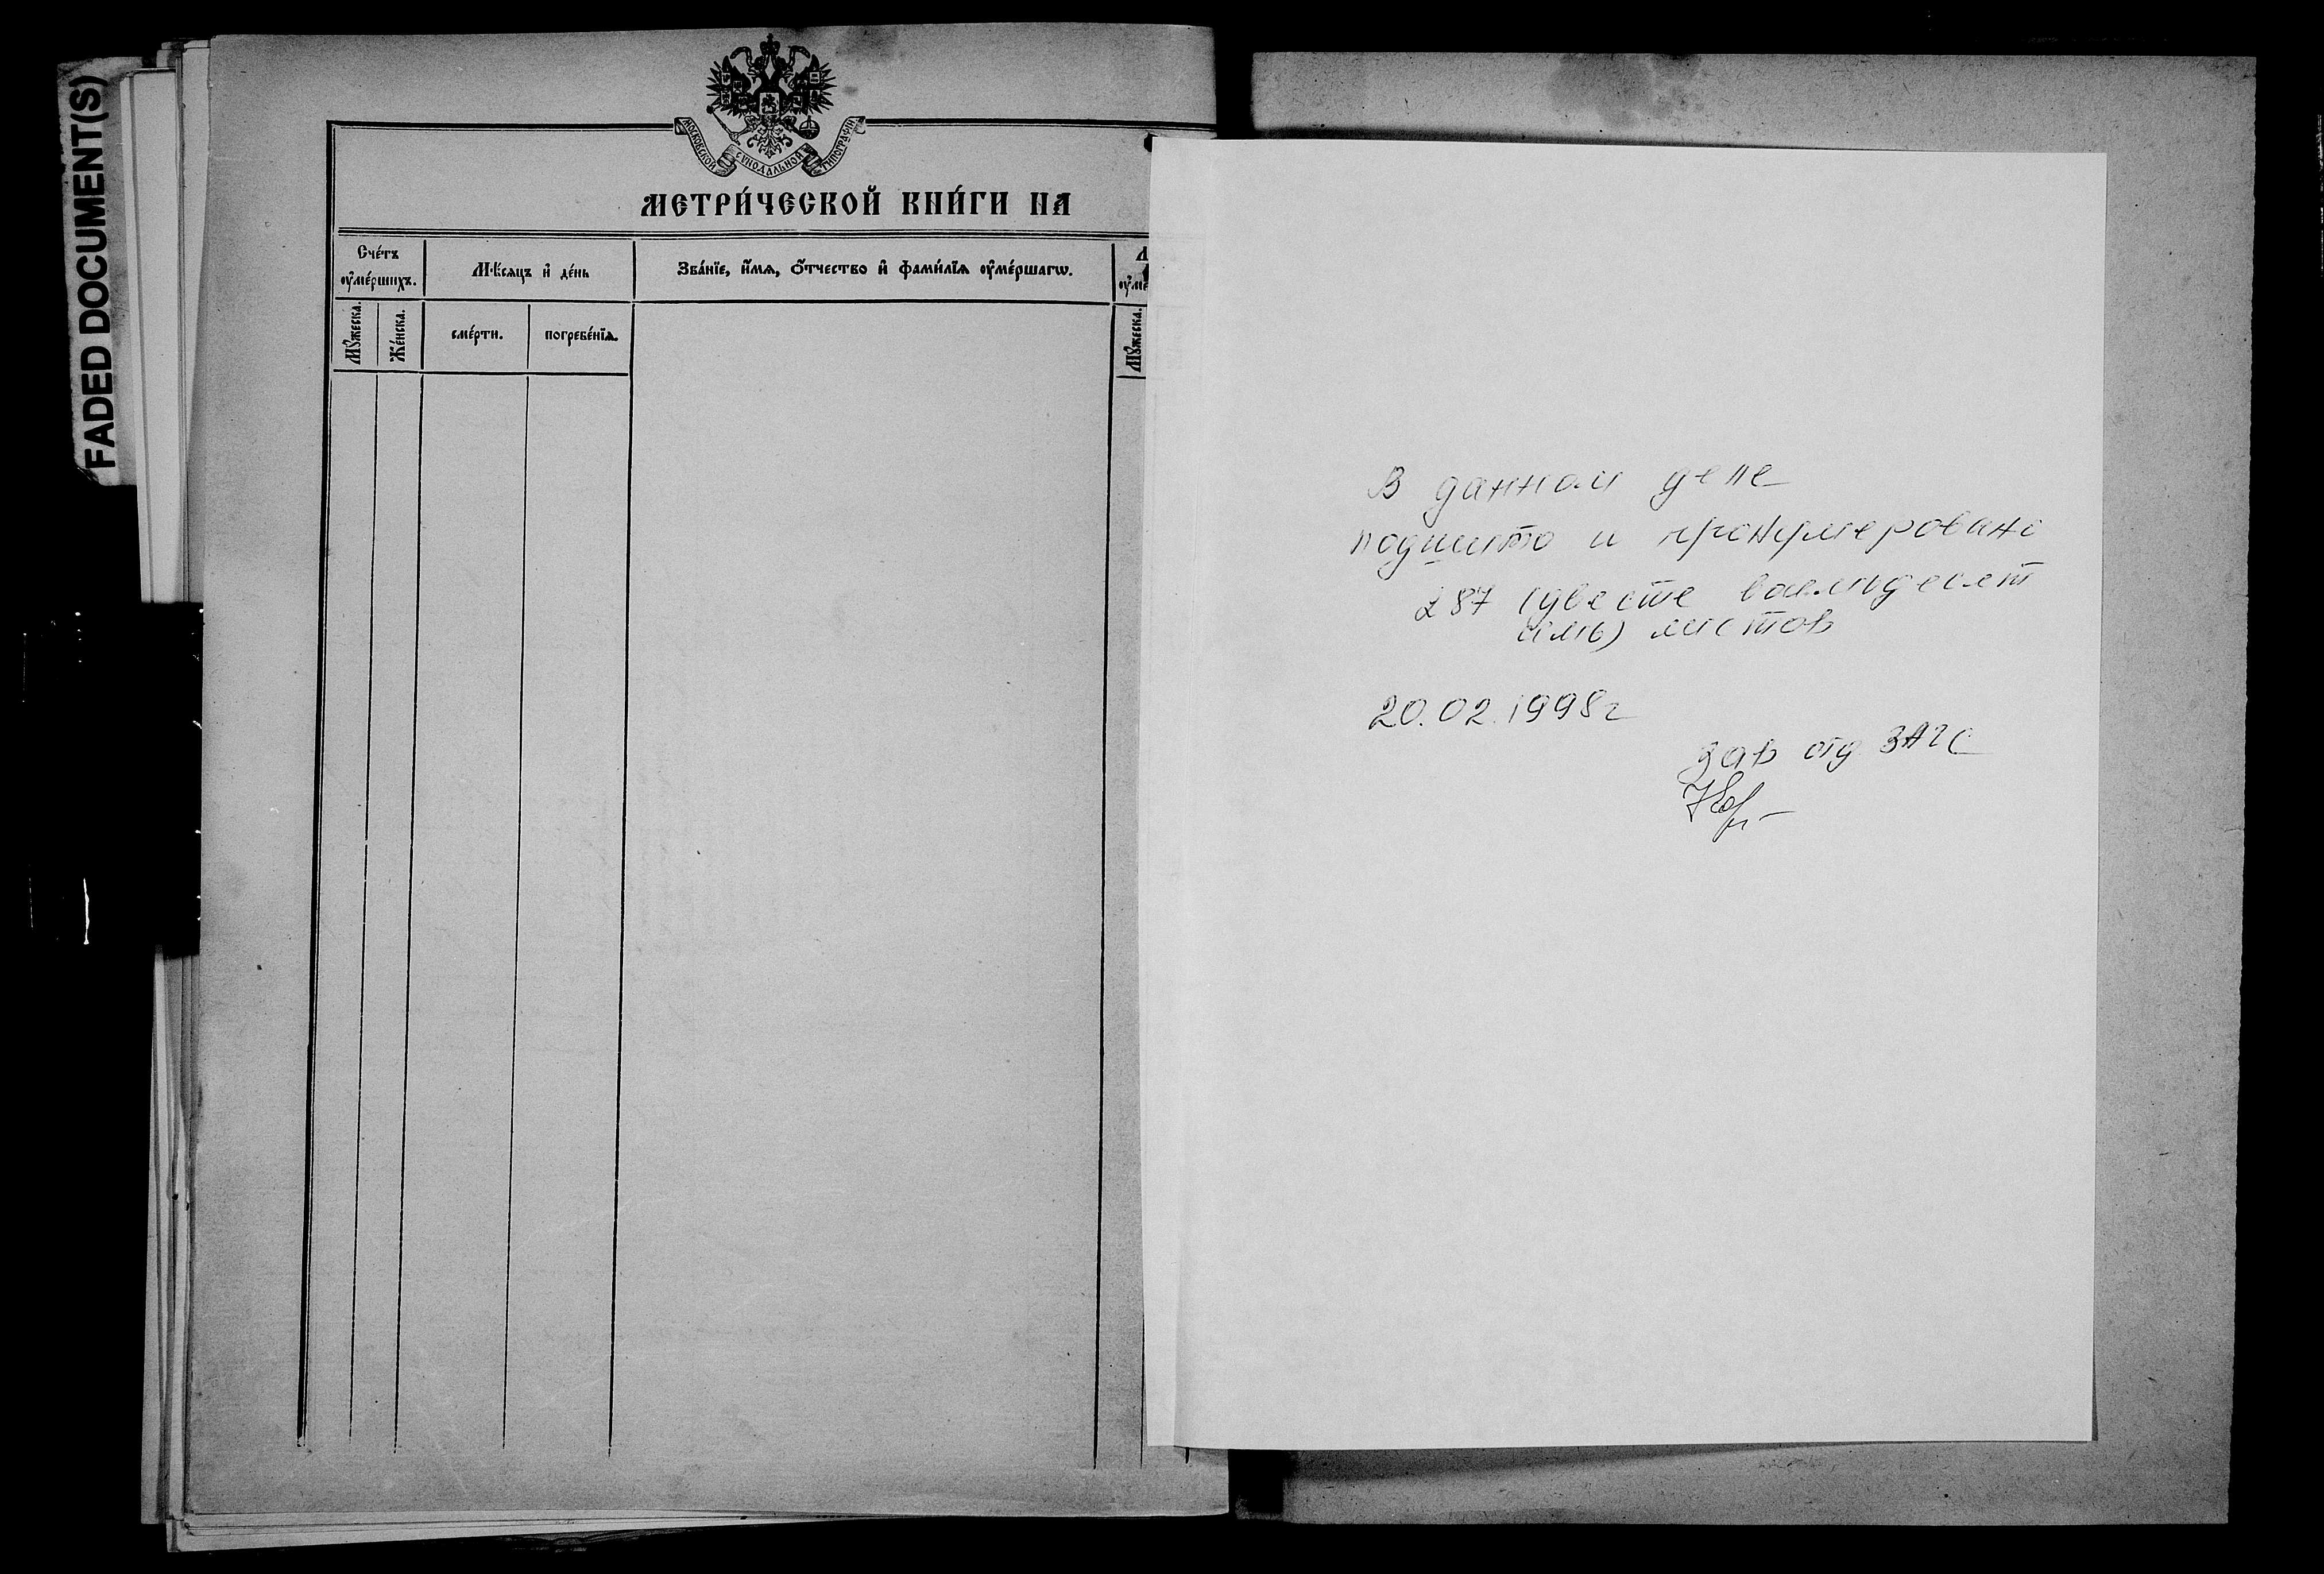 FADED DOCUMENT(S)
МОСКОВСКОЙ СѴНОДАЛЬНОЙ ТИПОГРАФІИ
МЕТРИ́ЧЕСКОЙ КНИ́ГИ НА
Сче́тъ ᲂу҆ме́ршихъ.
Мѣ́сяцъ и҆ де́нь
Зва́нїе, и҆́мѧ, ѻ҆́тчество и҆ фами́лїѧ ᲂу҆ме́ршагѡ.
Мꙋ́жеска.
Же́нска.
сме́рти.
погребе́нїѧ.
Мꙋ́жеска.
В данном деле
подшито и пронумеровано
287 (двести восемьдесят
семь) листов
20.02.1998г
Зав отд ЗАГС